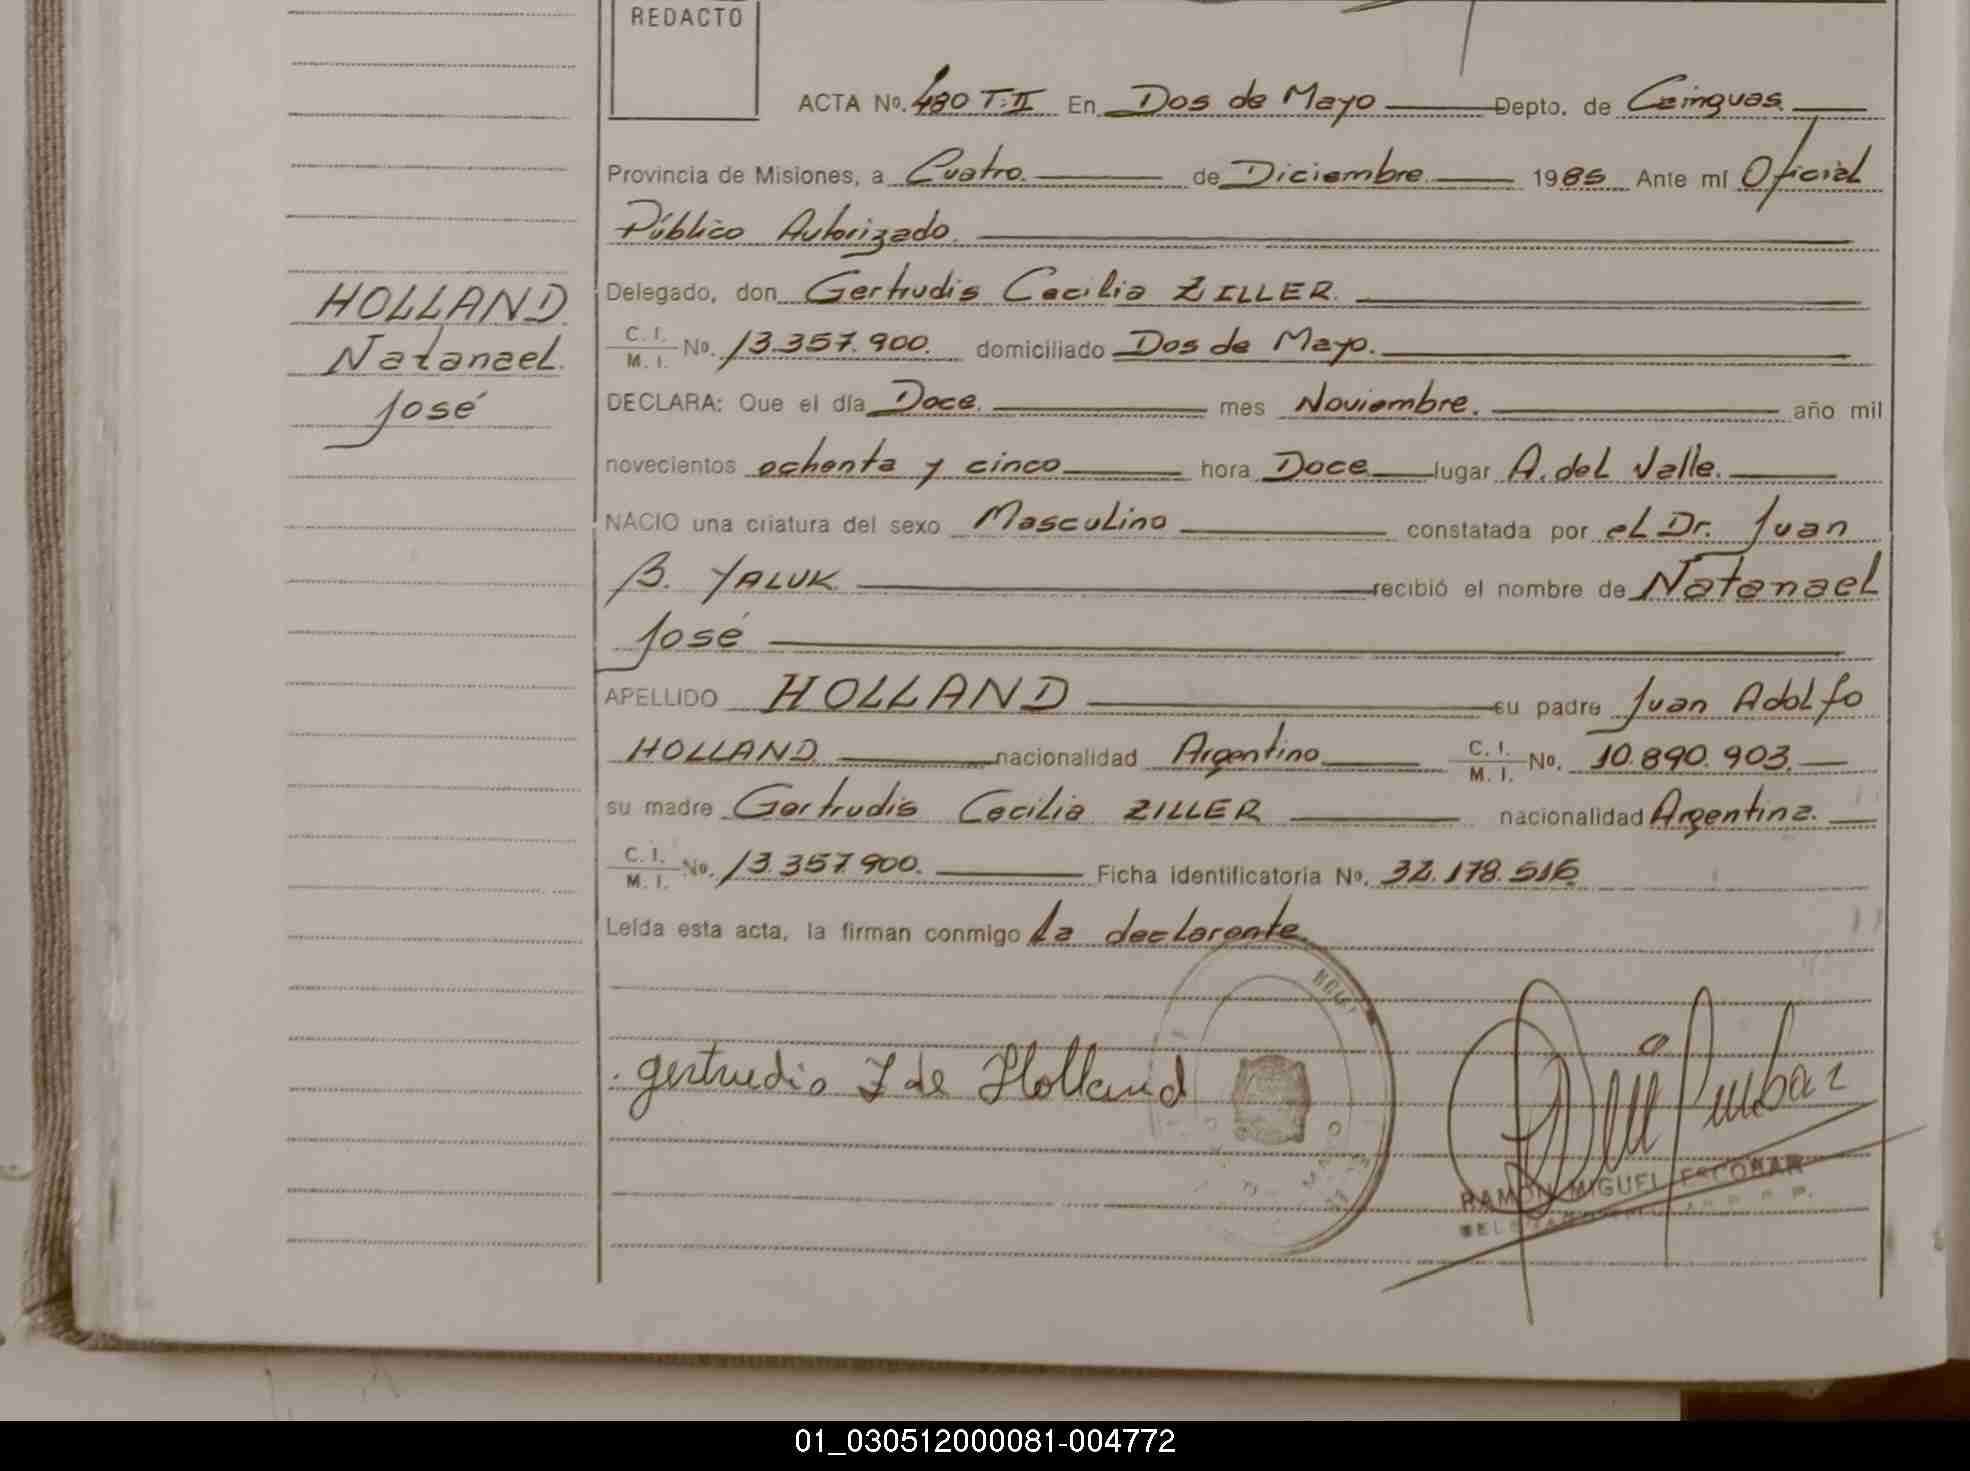 REDACTO
ACTA Nº. 480 T:II En Dos de Mayo Depto. de Cainguas
Provincia de Misiones, a Cuatro. de Diciembre. 1985 Ante mí Oficial
Público Autorizado.
Delegado, don Gertrudis Cecilia ZILLER.
C. I.
M. I. Nº. 13.357.900. domiciliado Dos de Mayo.
DECLARA: Que el día Doce. mes Noviembre. año mil
novecientos ochenta y cinco hora Doce lugar A. del Valle.
NACIO una criatura del sexo Masculino constatada por el Dr. Juan
B. YALUK recibió el nombre de Natanael
José
APELLIDO HOLLAND su padre Juan Adolfo
HOLLAND nacionalidad Argentino C. I.
M. I. Nº. 10.890.903.
su madre Gertrudis Cecilia ZILLER nacionalidad Argentina.
C. I.
M. I. Nº. 13.357.900. Ficha identificatoria Nº. 32.178.516
Leída esta acta, la firman conmigo la declarante.
HOLLAND
Natanael.
José
gertrudis Z de Holland
RAMON MIGUEL ESCOBAR
01_030512000081-004772